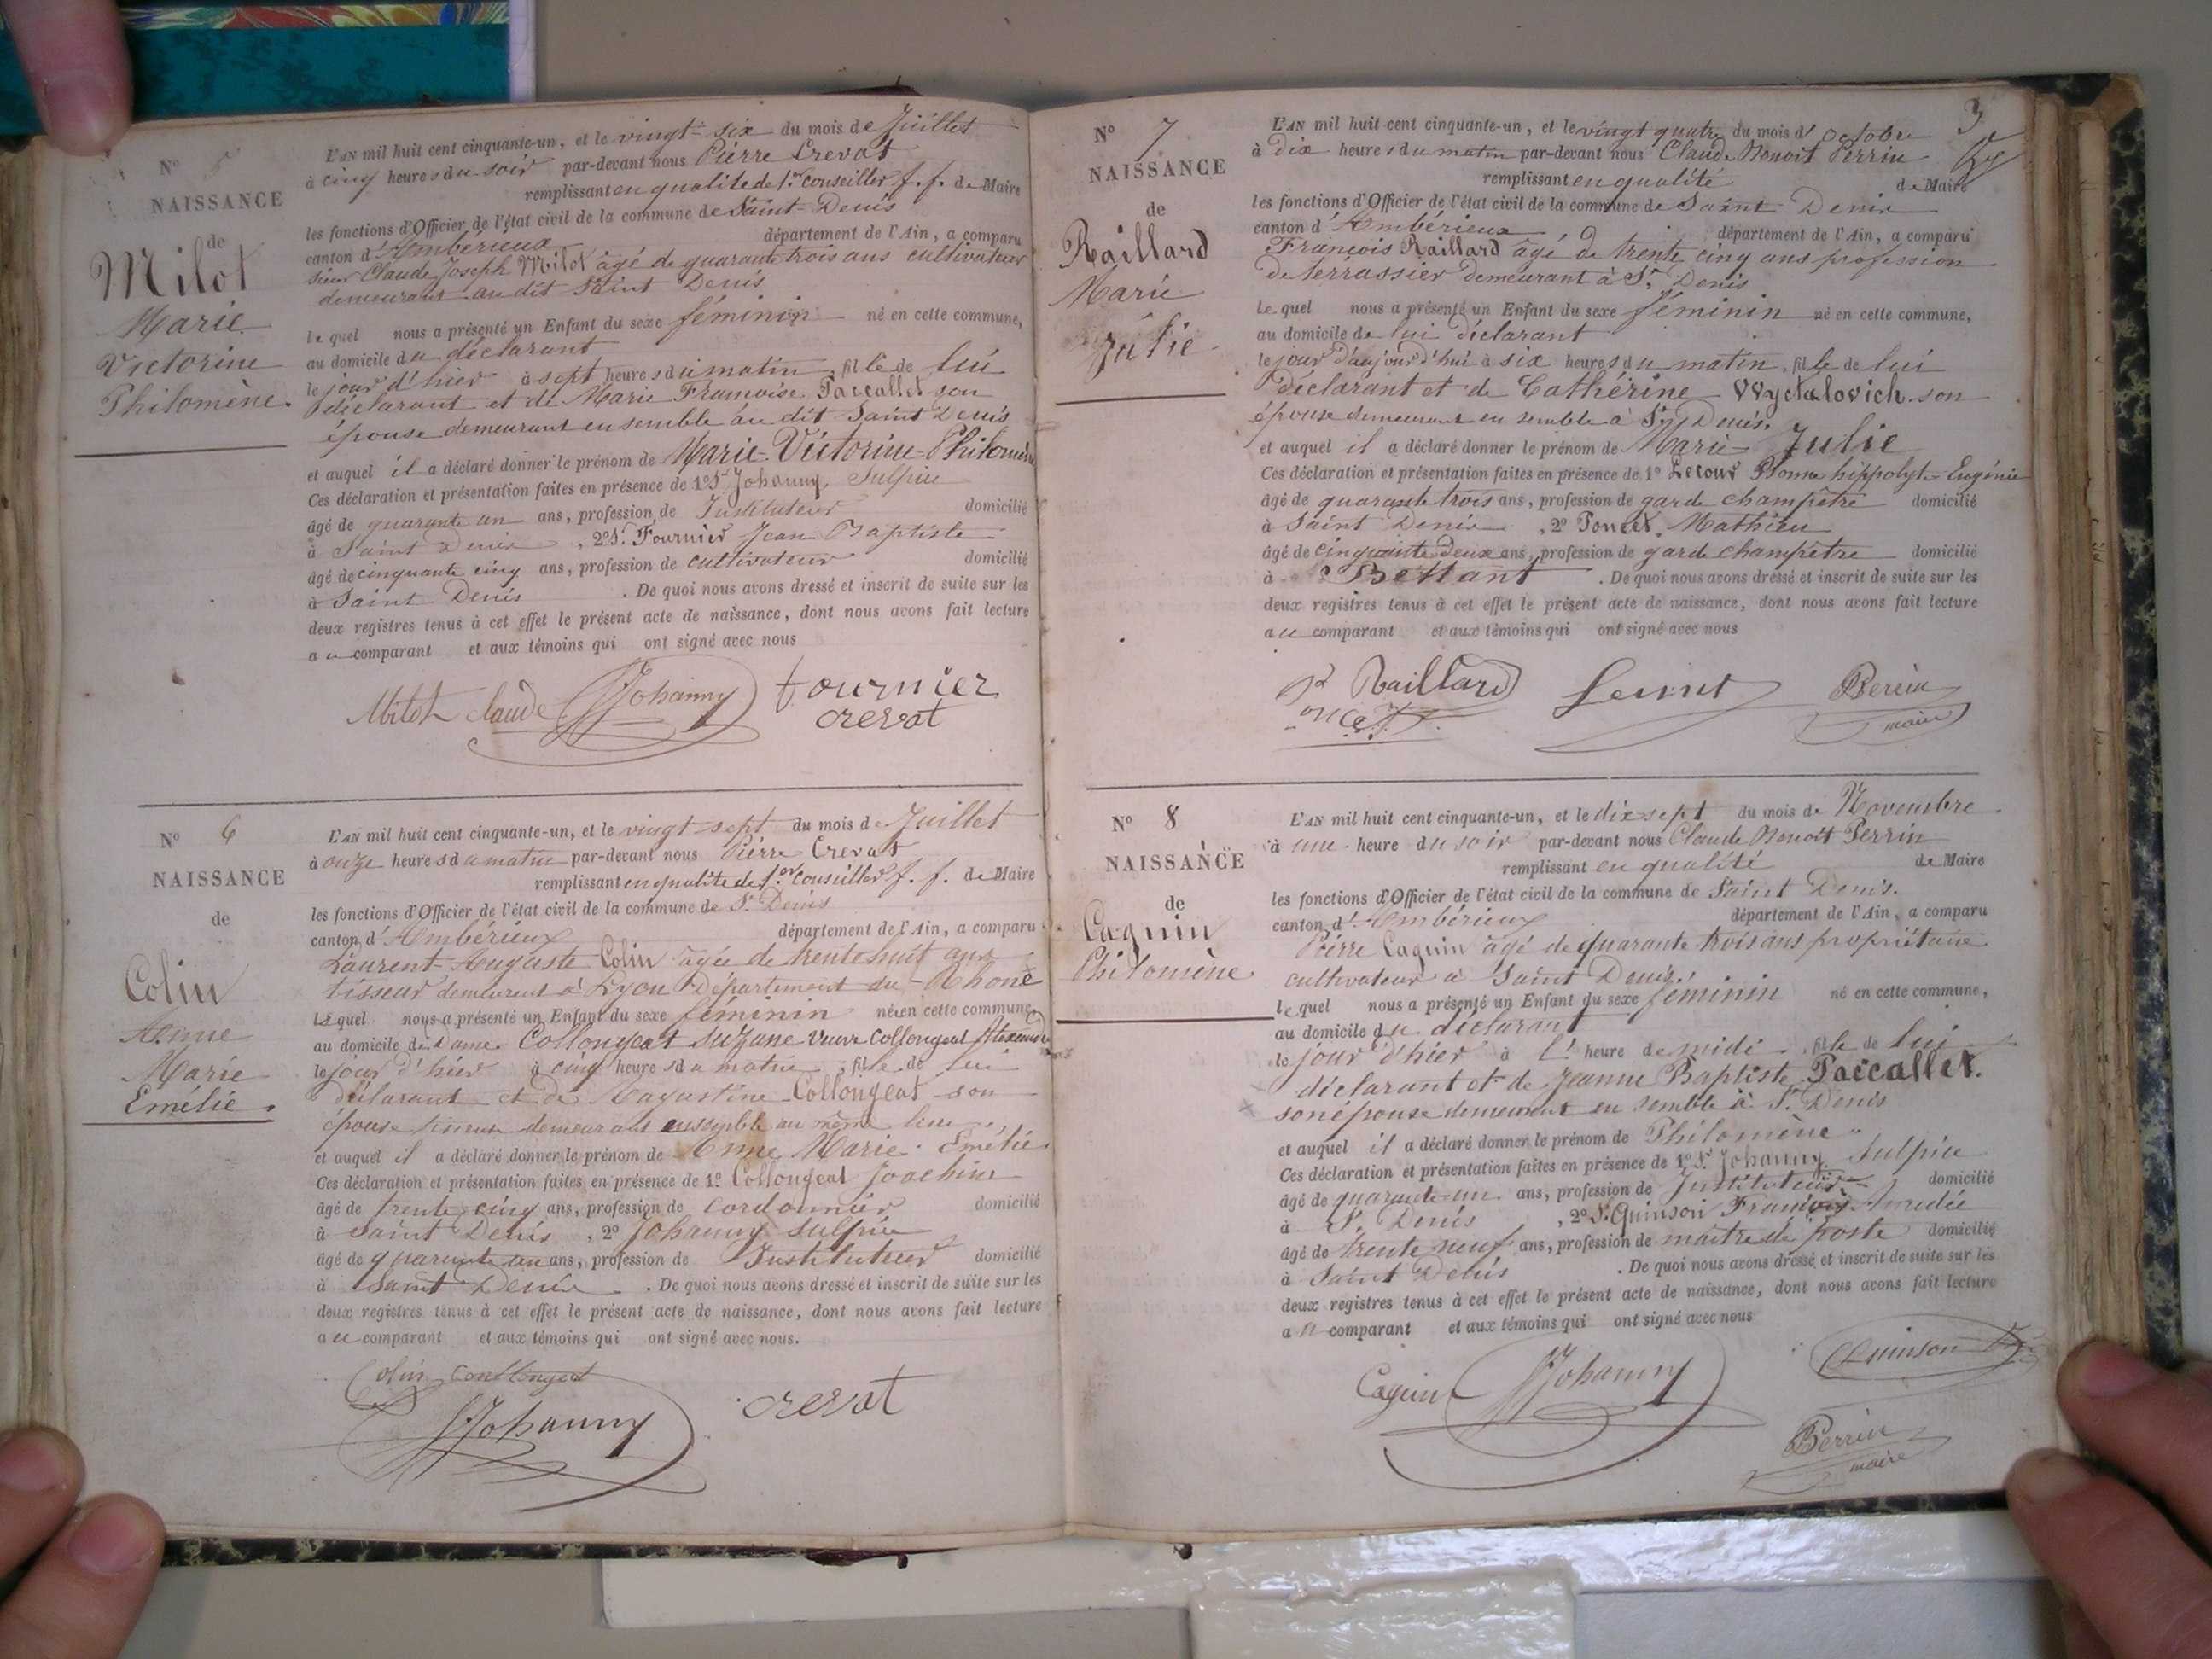 N° 5
NAISSANCE
de
Milot
Marie
Victorine
Philomène.
L'AN mil huit cent cinquante-un, et le vingt-six du mois de Juillet
à cinq heures du soir par-devant nous Pierre Crevat
remplissant en qualité de 1.er Conseiller f. f. de Maire
les fonctions d'Officier de l'état civil de la commune de Saint-Denis
canton d'Ambérieux département de l'Ain, a comparu
sieur Claude Joseph Milot âgé de quarante trois ans cultivateur
demeurant au dit Saint Denis
lequel nous a présenté un Enfant du sexe féminin né en cette commune,
au domicile du déclarant
le jour d'hier à sept heures du matin, fille de lui
déclarant et de Marie Françoise Paccallet son
épouse demeurant ensemble au dit Saint Denis
et auquel il a déclaré donner le prénom de Marie-Victorine-Philomène
Ces déclaration et présentation faites en présence de 1° Sr Johanny Sulpice
âgé de quarante un ans, profession de Instituteur domicilié
à Saint Denis , 2° Sr. Fournier Jean Baptiste
âgé de cinquante cinq ans, profession de cultivateur domicilié
à Saint Denis . De quoi nous avons dressé et inscrit de suite sur les
deux registres tenus à cet effet le présent acte de naissance, dont nous avons fait lecture
au comparant et aux témoins qui ont signé avec nous
Milot Claude Johanny fournier
crevat
N° 6
NAISSANCE
de
Colin
Anne
Marie
Emélie.
L'AN mil huit cent cinquante-un, et le vingt sept du mois de Juillet
à onze heures du matin par-devant nous Pierre Crevat
remplissant en qualité de 1.er Conseiller f. f. de Maire
les fonctions d'Officier de l'état civil de la commune de St. Denis
canton d'Ambérieux département de l'Ain, a comparu
Laurent-Auguste Colin âgée de trente huit ans
tisseur demeurent à Lyon Département du Rhône
lequel nous a présenté un Enfant du sexe féminin née en cette commune,
au domicile de Dame Collongeat Suzane veuve Collongeat
le jour d'hier à cinq heures du matin, fille de lui
déclarant et de Collongeat son
épouse demeurant ensemble au même lieu
et auquel il a déclaré donner le prénom de Anne Marie Emélie
Ces déclaration et présentation faites en présence de 1° Collongeat Joachim
âgé de trente cinq ans, profession de cordonnier domicilié
à Saint Denis , 2° Johanny Sulpice
âgé de quarante un ans, profession de Instituteur domicilié
à Saint Denis . De quoi nous avons dressé et inscrit de suite sur les
deux registres tenus à cet effet le présent acte de naissance, dont nous avons fait lecture
au comparant et aux témoins qui ont signé avec nous.
Colin Conllongeat
Johanny crevat
3
N° 7
NAISSANCE
de
Raillard
Marie
Julie
L'AN mil huit cent cinquante-un, et le vingt quatre du mois d'Octobre
à dix heures du matin par-devant nous Claude Benoit Perrin
remplissant en qualité de Maire
les fonctions d'Officier de l'état civil de la commune de Saint Denis
canton d'Ambérieux département de l'Ain, a comparu
François Raillard âgé de trente cinq ans profession
de terrassier demeurant à St. Denis
lequel nous a présenté un Enfant du sexe féminin né en cette commune,
au domicile de lui déclarant
le jour d'aujourd'hui à six heures du matin, fille de lui
déclarant et de Cathérine Wyckalovich son
épouse demeurant ensemble à St. Denis.
et auquel il a déclaré donner le prénom de Marie Julie
Ces déclaration et présentation faites en présence de 1° hippolyte Eugénie
âgé de quarante trois ans, profession de garde champêtre domicilié
à Saint Denis , 2° Poncet Mathieu
âgé de cinquante deux ans, profession de garde champêtre domicilié
à Bettant . De quoi nous avons dressé et inscrit de suite sur les
deux registres tenus à cet effet le présent acte de naissance, dont nous avons fait lecture
au comparant et aux témoins qui ont signé avec nous
Raillard Perrin
Poncet maire
N° 8
NAISSANCE
de
Caguin
Philomène
L'AN mil huit cent cinquante-un, et le dix sept du mois de Novembre
à une heure du soir par-devant nous Claude Benoit Perrin
remplissant en qualité de Maire
les fonctions d'Officier de l'état civil de la commune de Saint Denis.
canton d'Ambérieux département de l'Ain, a comparu
Pierre Caguin âgé de quarante trois ans propriétaire
cultivateur à Saint Denis
lequel nous a présenté un Enfant du sexe féminin né en cette commune,
au domicile du déclarant
le jour d'hier à l' heure de midi, fille de lui
déclarant et de Jeanne Baptiste Paccallet.
son épouse demeurant ensemble à St. Denis
et auquel il a déclaré donner le prénom de Philomène
Ces déclaration et présentation faites en présence de 1° Sr. Johanny Sulpice
âgé de quarante-un ans, profession de Instituteur domicilié
à St. Denis , 2° Sr. Quinson François Amédée
âgé de trente neuf ans, profession de maître de poste domicilié
à Saint Denis . De quoi nous avons dressé et inscrit de suite sur les
deux registres tenus à cet effet le présent acte de naissance, dont nous avons fait lecture
au comparant et aux témoins qui ont signé avec nous
Caguin Johanny Quinson
Perrin
maire